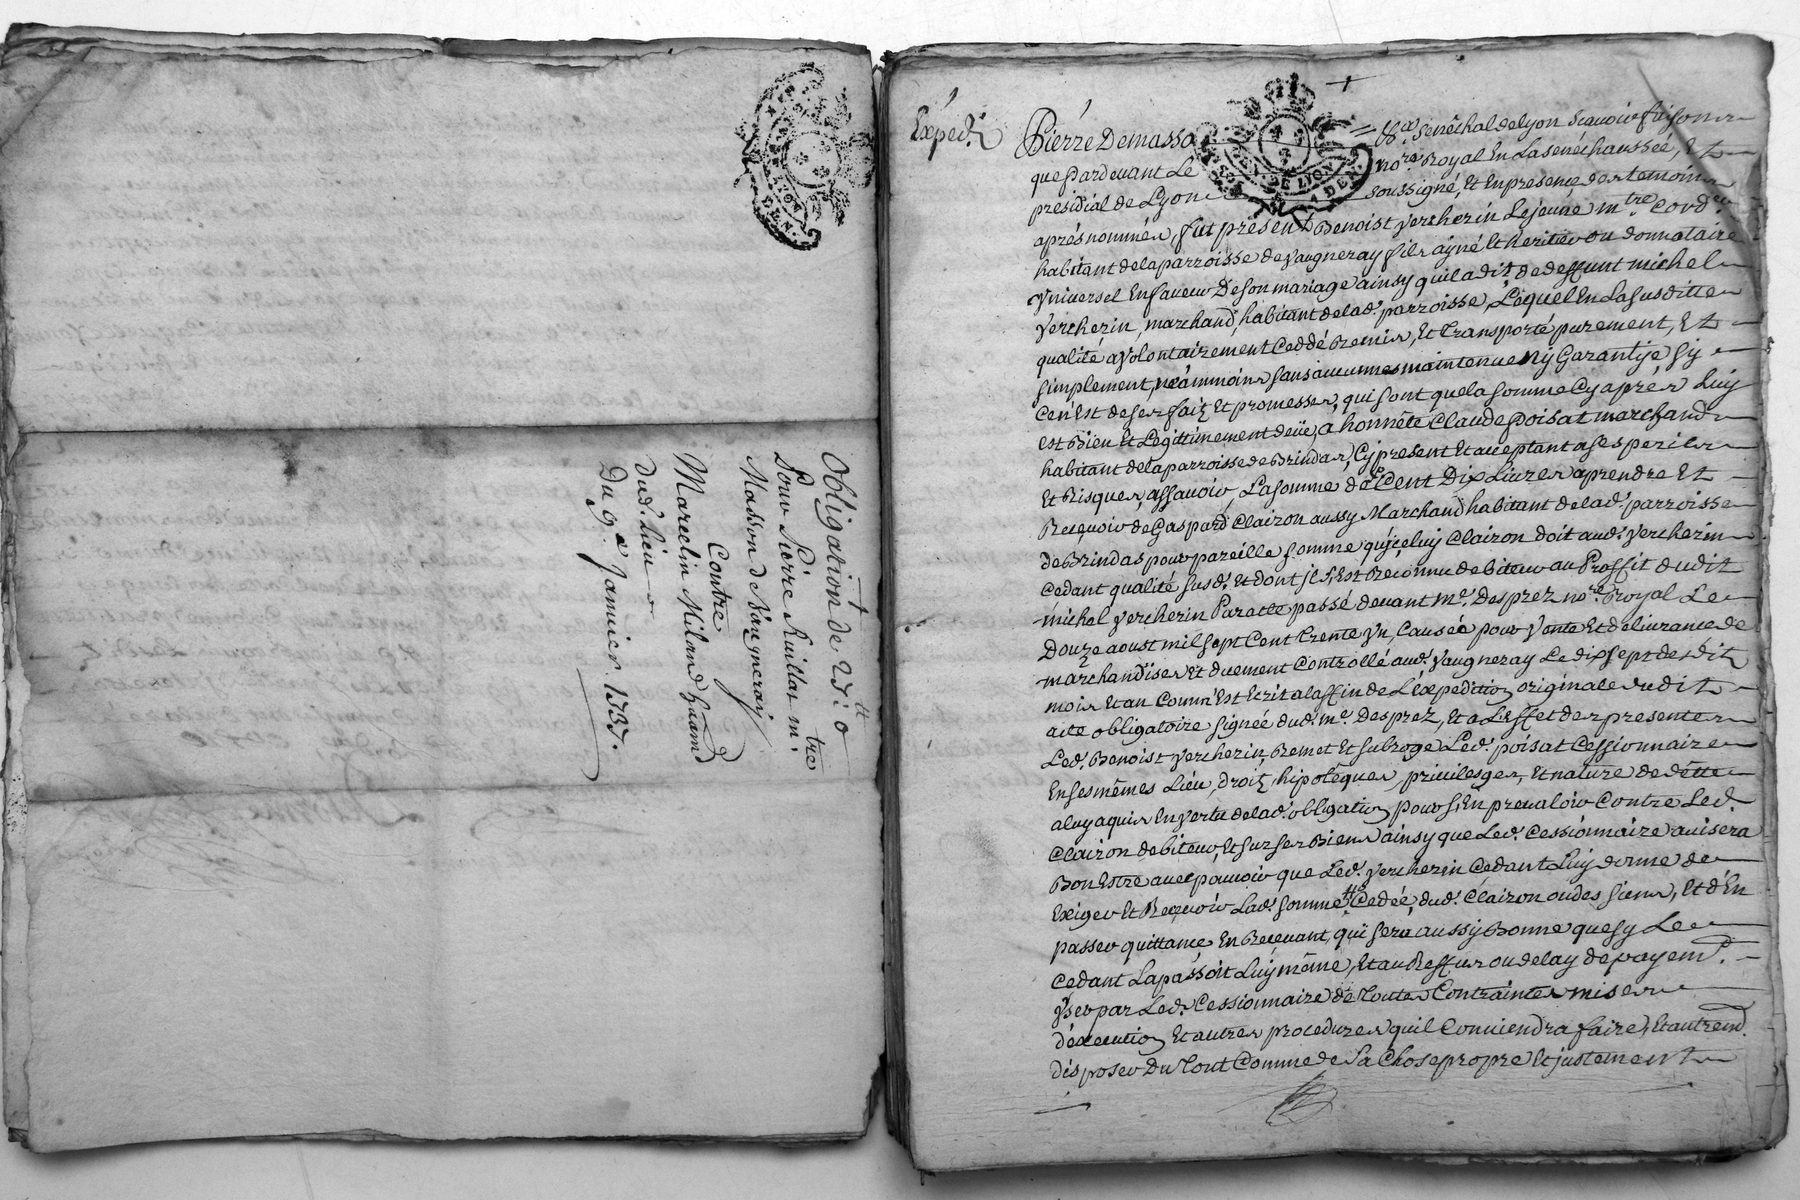 Obligation de 25ᵗᵗ 0
Pour Pierre Ruillat mᵗʳᵉ
Masson de Vaugneray
Contre
Marcelin Miland
dud. lieu
Du 9ᵉ Janvier 1737.
GEN. DE LYON
Expéd.
Pierre Demasso Senéchal de Lyon scavoir faisons
que pardevant Le noʳᵉ Royal En La senéchaussée, Et
présidial de Lyon soussigné, Et En presence des temoins
aprés nommés, fut présent Benoist Vercherin Lejeune mᵗʳᵉ Cordʳ
habitant de la parroisse de Vaugneray fils ayné Et heritier ou donnataire
Vniversel En faveur De son mariage ainsy quil a dit de deffunt michel
Vercherin, marchand, habitant de lad. parroisse, Lequel En La susditte
qualité a Volontairement Ceddé Remis, Et Transporté purement, Et
simplement, néammoins sans aucunnes maintenue Ny Garantye sy
Ce n'Est de ses faits Et promesses, qui sont que la somme Cy aprés Luy
est Bien Et Legittimement deüe, a honnête Claude Poisat marchand
habitant de la parroisse de Brindas, Cy présent Et acceptant a ses perils
Et Risques, assavoir, La somme de Cent Dix Livres aprendre Et
Recevoir de Gaspard Clairon aussy Marchand habitant de lad. parroisse
de Brindas pour pareille somme qu'yceluy Clairon doit aud. Vercherin
Cedant qualité susd. Et dont jl s'Est Reconnu debiteur au Proffit dudit
michel Vercherin Par acte passé devant mᵉ. Desprez noʳᵉ Royal Le
Douze aoust mil sept Cent Trente Vn, Causée pour Vente Et delivrance de
marchandises Et duement Controllé aud. Vaugneray Le dix sept desdit
mois Et an Comm'Est Ecrit a la ffin de L'éxpedition originale dudit
acte obligatoire signée dud. mᵉ. Desprez, Et a L'Effet des presentes
Led. Benoist Vercherin, Remet Et subroge Led. poisat Cessionnaire
En ses mêmes Lieu, droits, hipotêques, privileges, Et nature de dêtte
a luy aquis En Vertu de lad. obligation pour s'En prevaloir Contre Led.
Clairon debiteur, Et sur ses Biens ainsy que Led. Cessionnaire avisera
Bon Estre avec pouvoir que Led. Vercherin Cedant Luy donne de
Exiger Et Recevoir Lad. somme Cedée, dud. Clairon ou des siens, Et d'En
passer quittance En Recevant, qui sera aussy Bonne que sy Le
Cedant La passoit Luy même, Et au Reffus ou delay de payemᵗ.
Vser par Led. Cessionnaire de Toutes Contraintes mises
d'éxecution Et autres procedures quil Conviendra faire, Et autremᵗ.
disposer Du Tout Comme de sa Chose propre Et justement